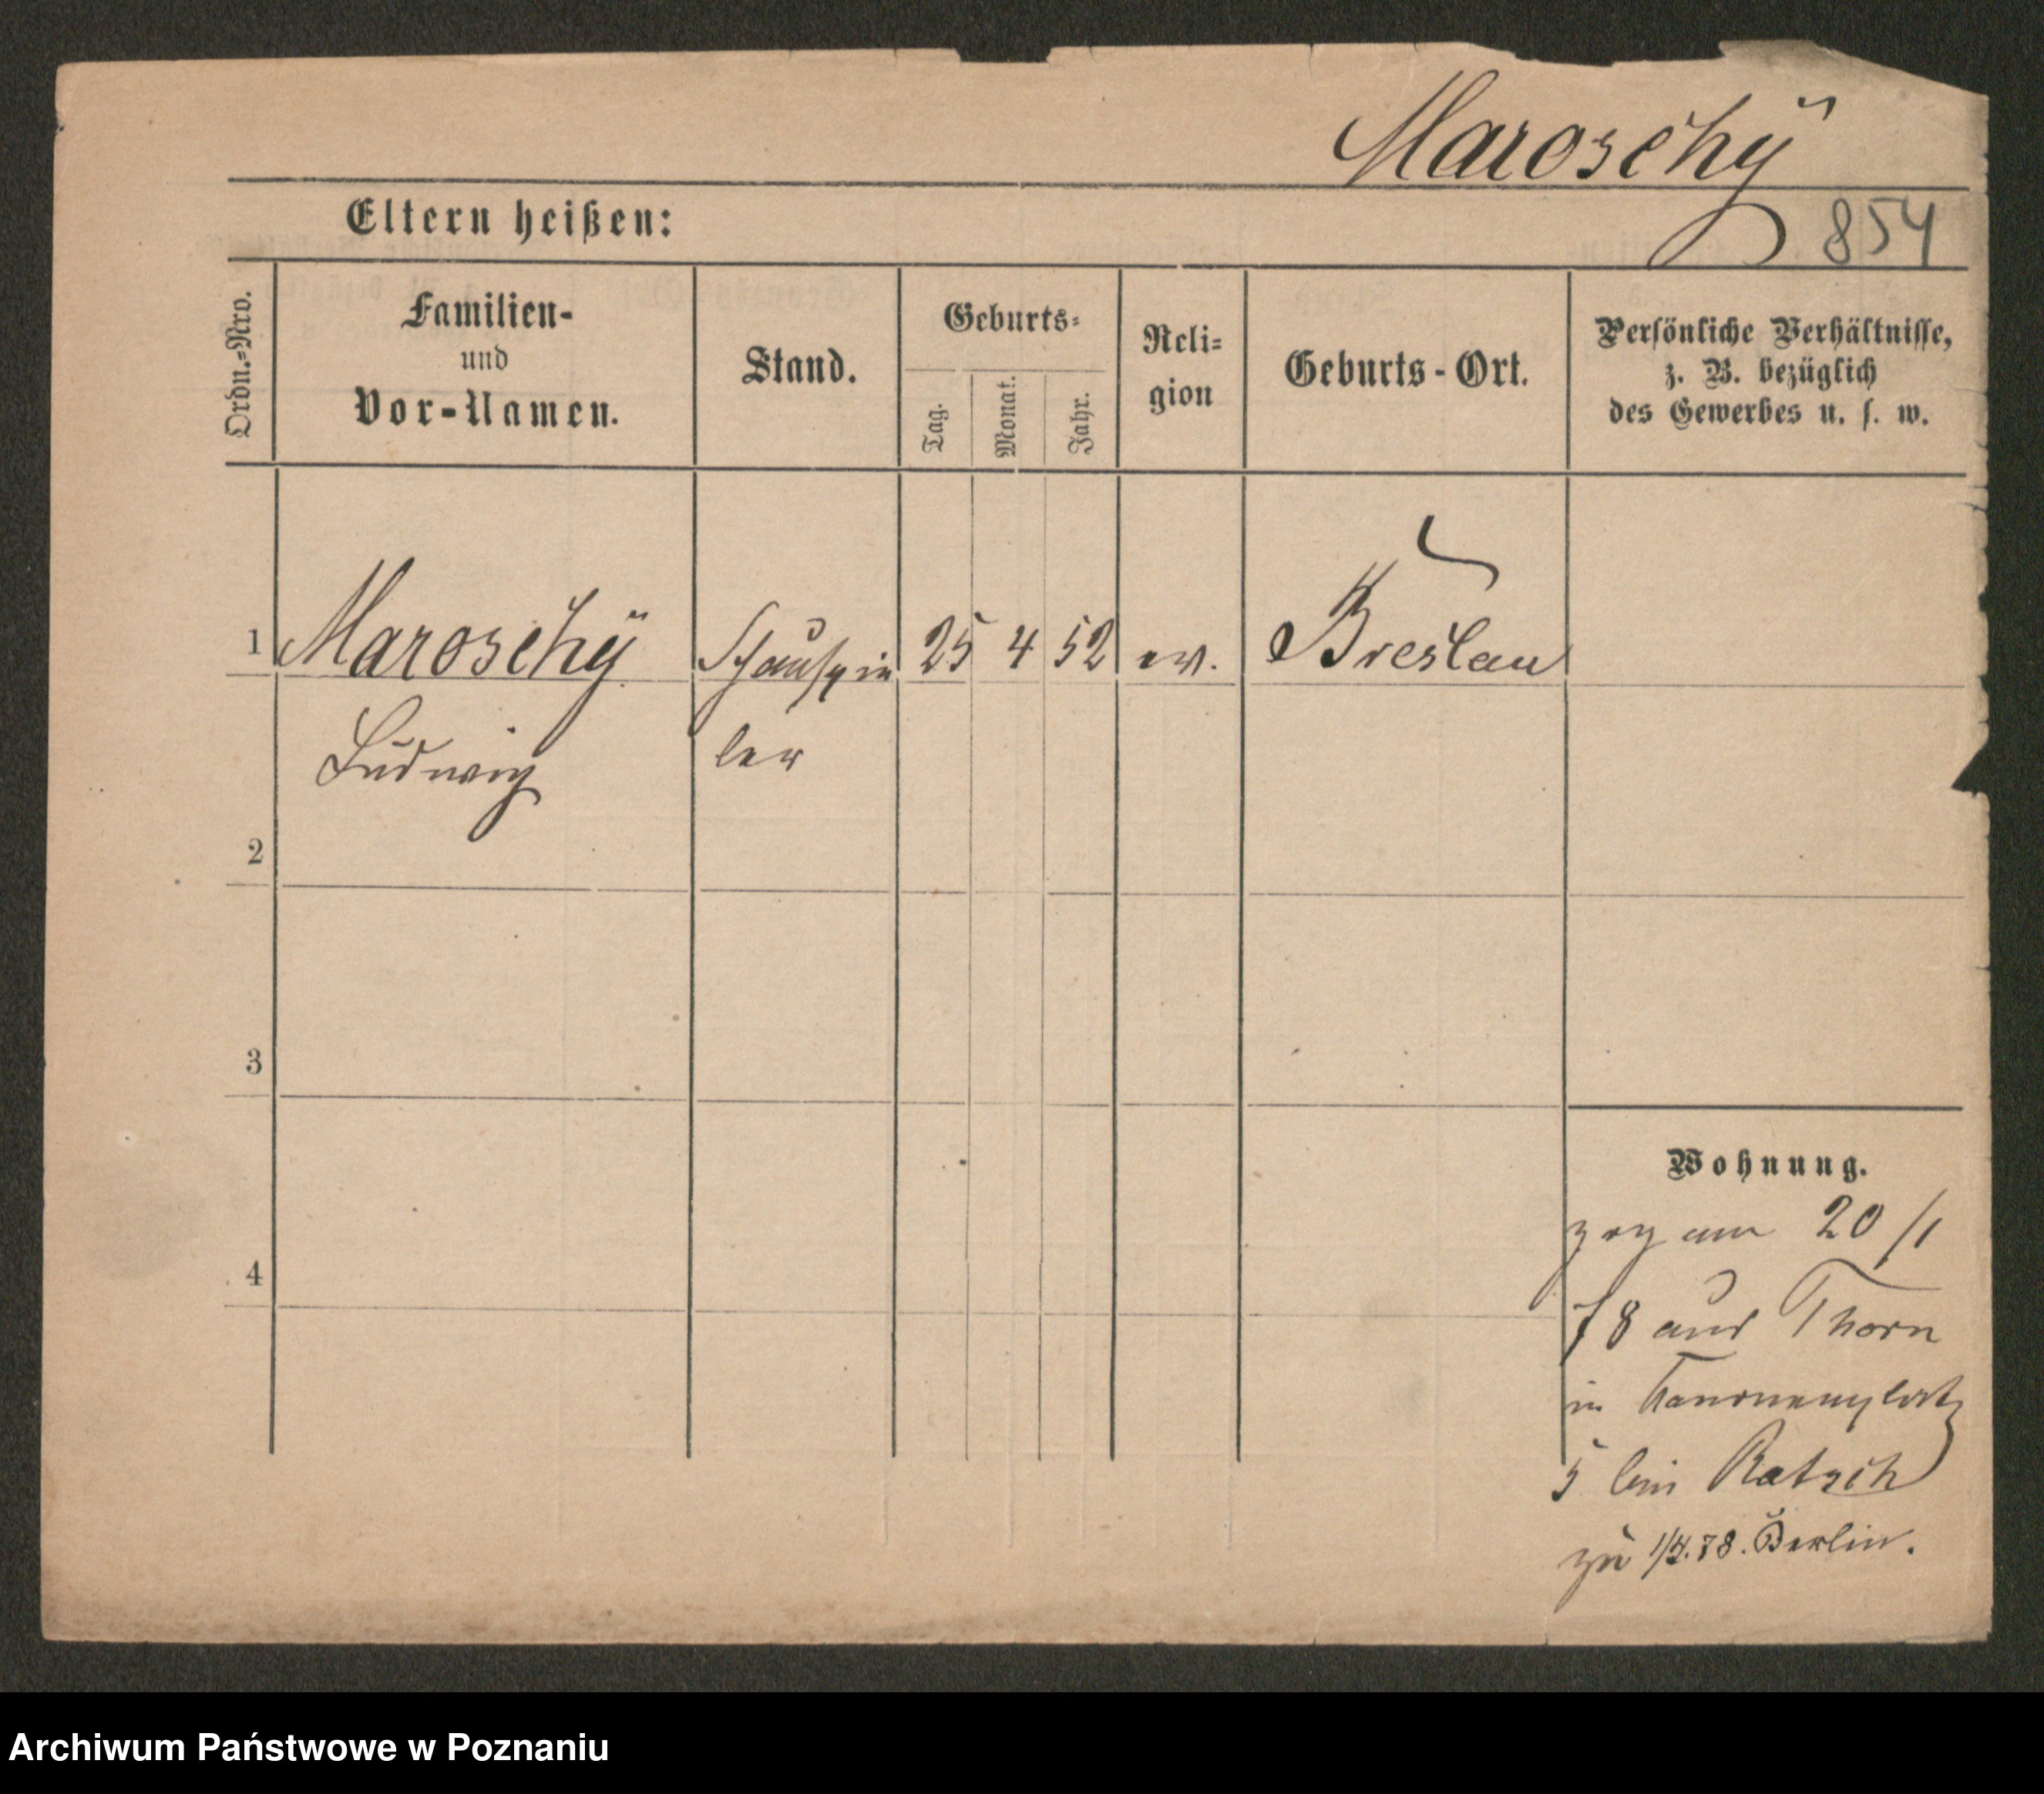 Maroschÿ
Eltern heißen:
854
Ordn.=Nro.
Familien-
und
Vor-Namen.
Stand.
Geburts=
Tag.
Monat.
Jahr.
Reli=
gion
Geburts-Ort.
Persönliche Verhältnisse,
z. B. bezüglich
des Gewerbes u. s. w.
1 Maroschÿ Schauspie 25 4 52 ev. Breslau
Ludwig ler
2
3
4
Wohnung.
zog am 20/1
78 aus Thorn
in Kanonenplatz
5 bei Ratsch
1/4.78. Berlin.
Archiwum Państwowe w Poznaniu